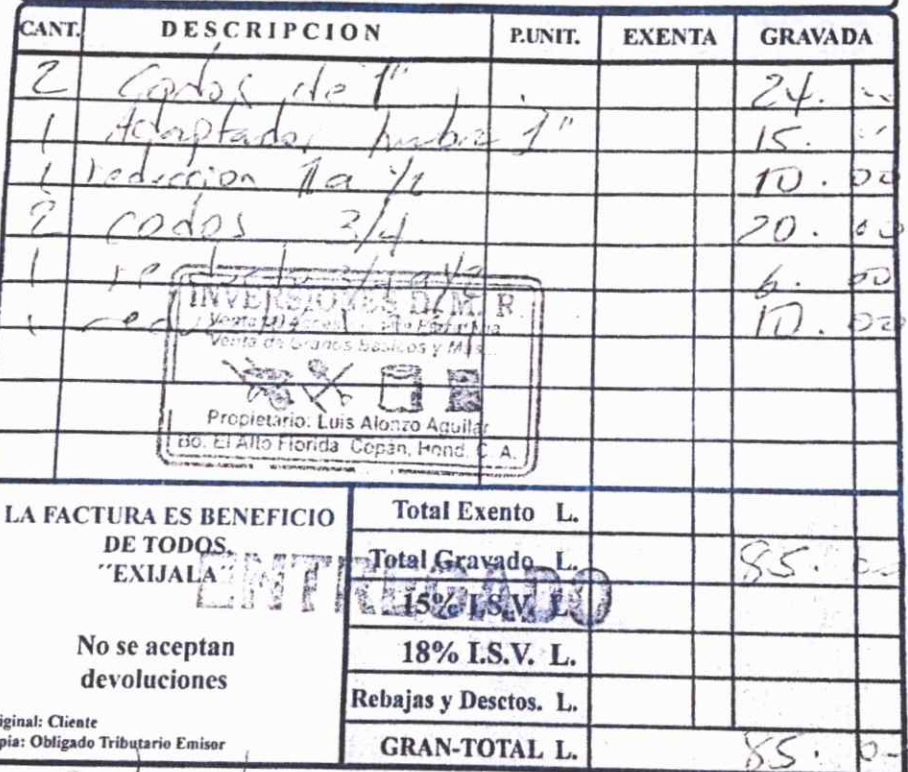 CANT. DESCRIPCION P.UNIT. EXENTA GRAVADA
2 Codos de 1" 24.
1 Adaptador hembra 1" 15.
1 reduccion 1 a 1/2 10.00
2 codos 3/4 20.00
1 6.00
1 10.00
INVERSIONES D/M. R
Venta de Granos Basicos y Mas...
Propietario: Luis Alonzo Aguilar
Bo. El Alto Florida Copán, Hond. C. A.
LA FACTURA ES BENEFICIO
DE TODOS,
"EXIJALA"
ENTREGADO
No se aceptan
devoluciones
iginal: Cliente
pia: Obligado Tributario Emisor
Total Exento L.
Total Gravado L. 85.
15% I.S.V. L.
18% I.S.V. L.
Rebajas y Desctos. L.
GRAN-TOTAL L. 85.